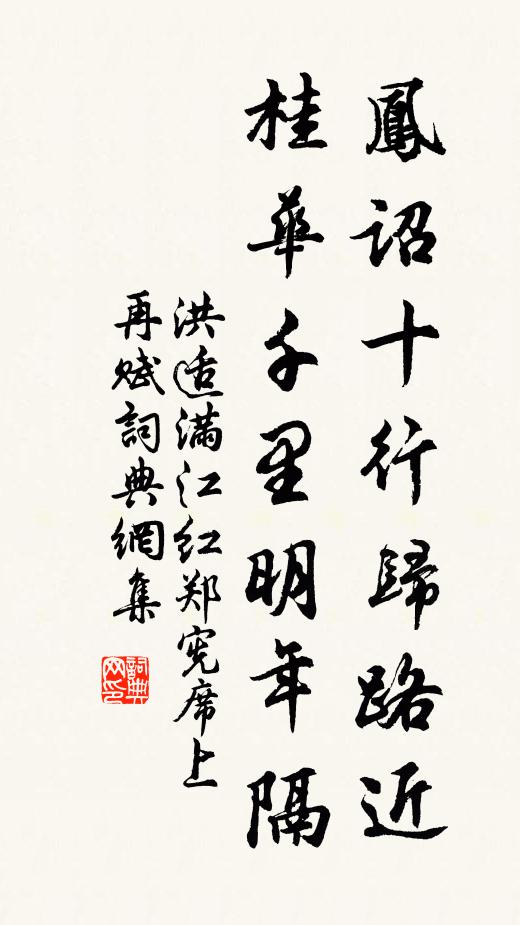 鳳詔十行歸路近
桂華千里明年隔
洪适满江红郑宪席上
再赋詞典網集
詞典网印